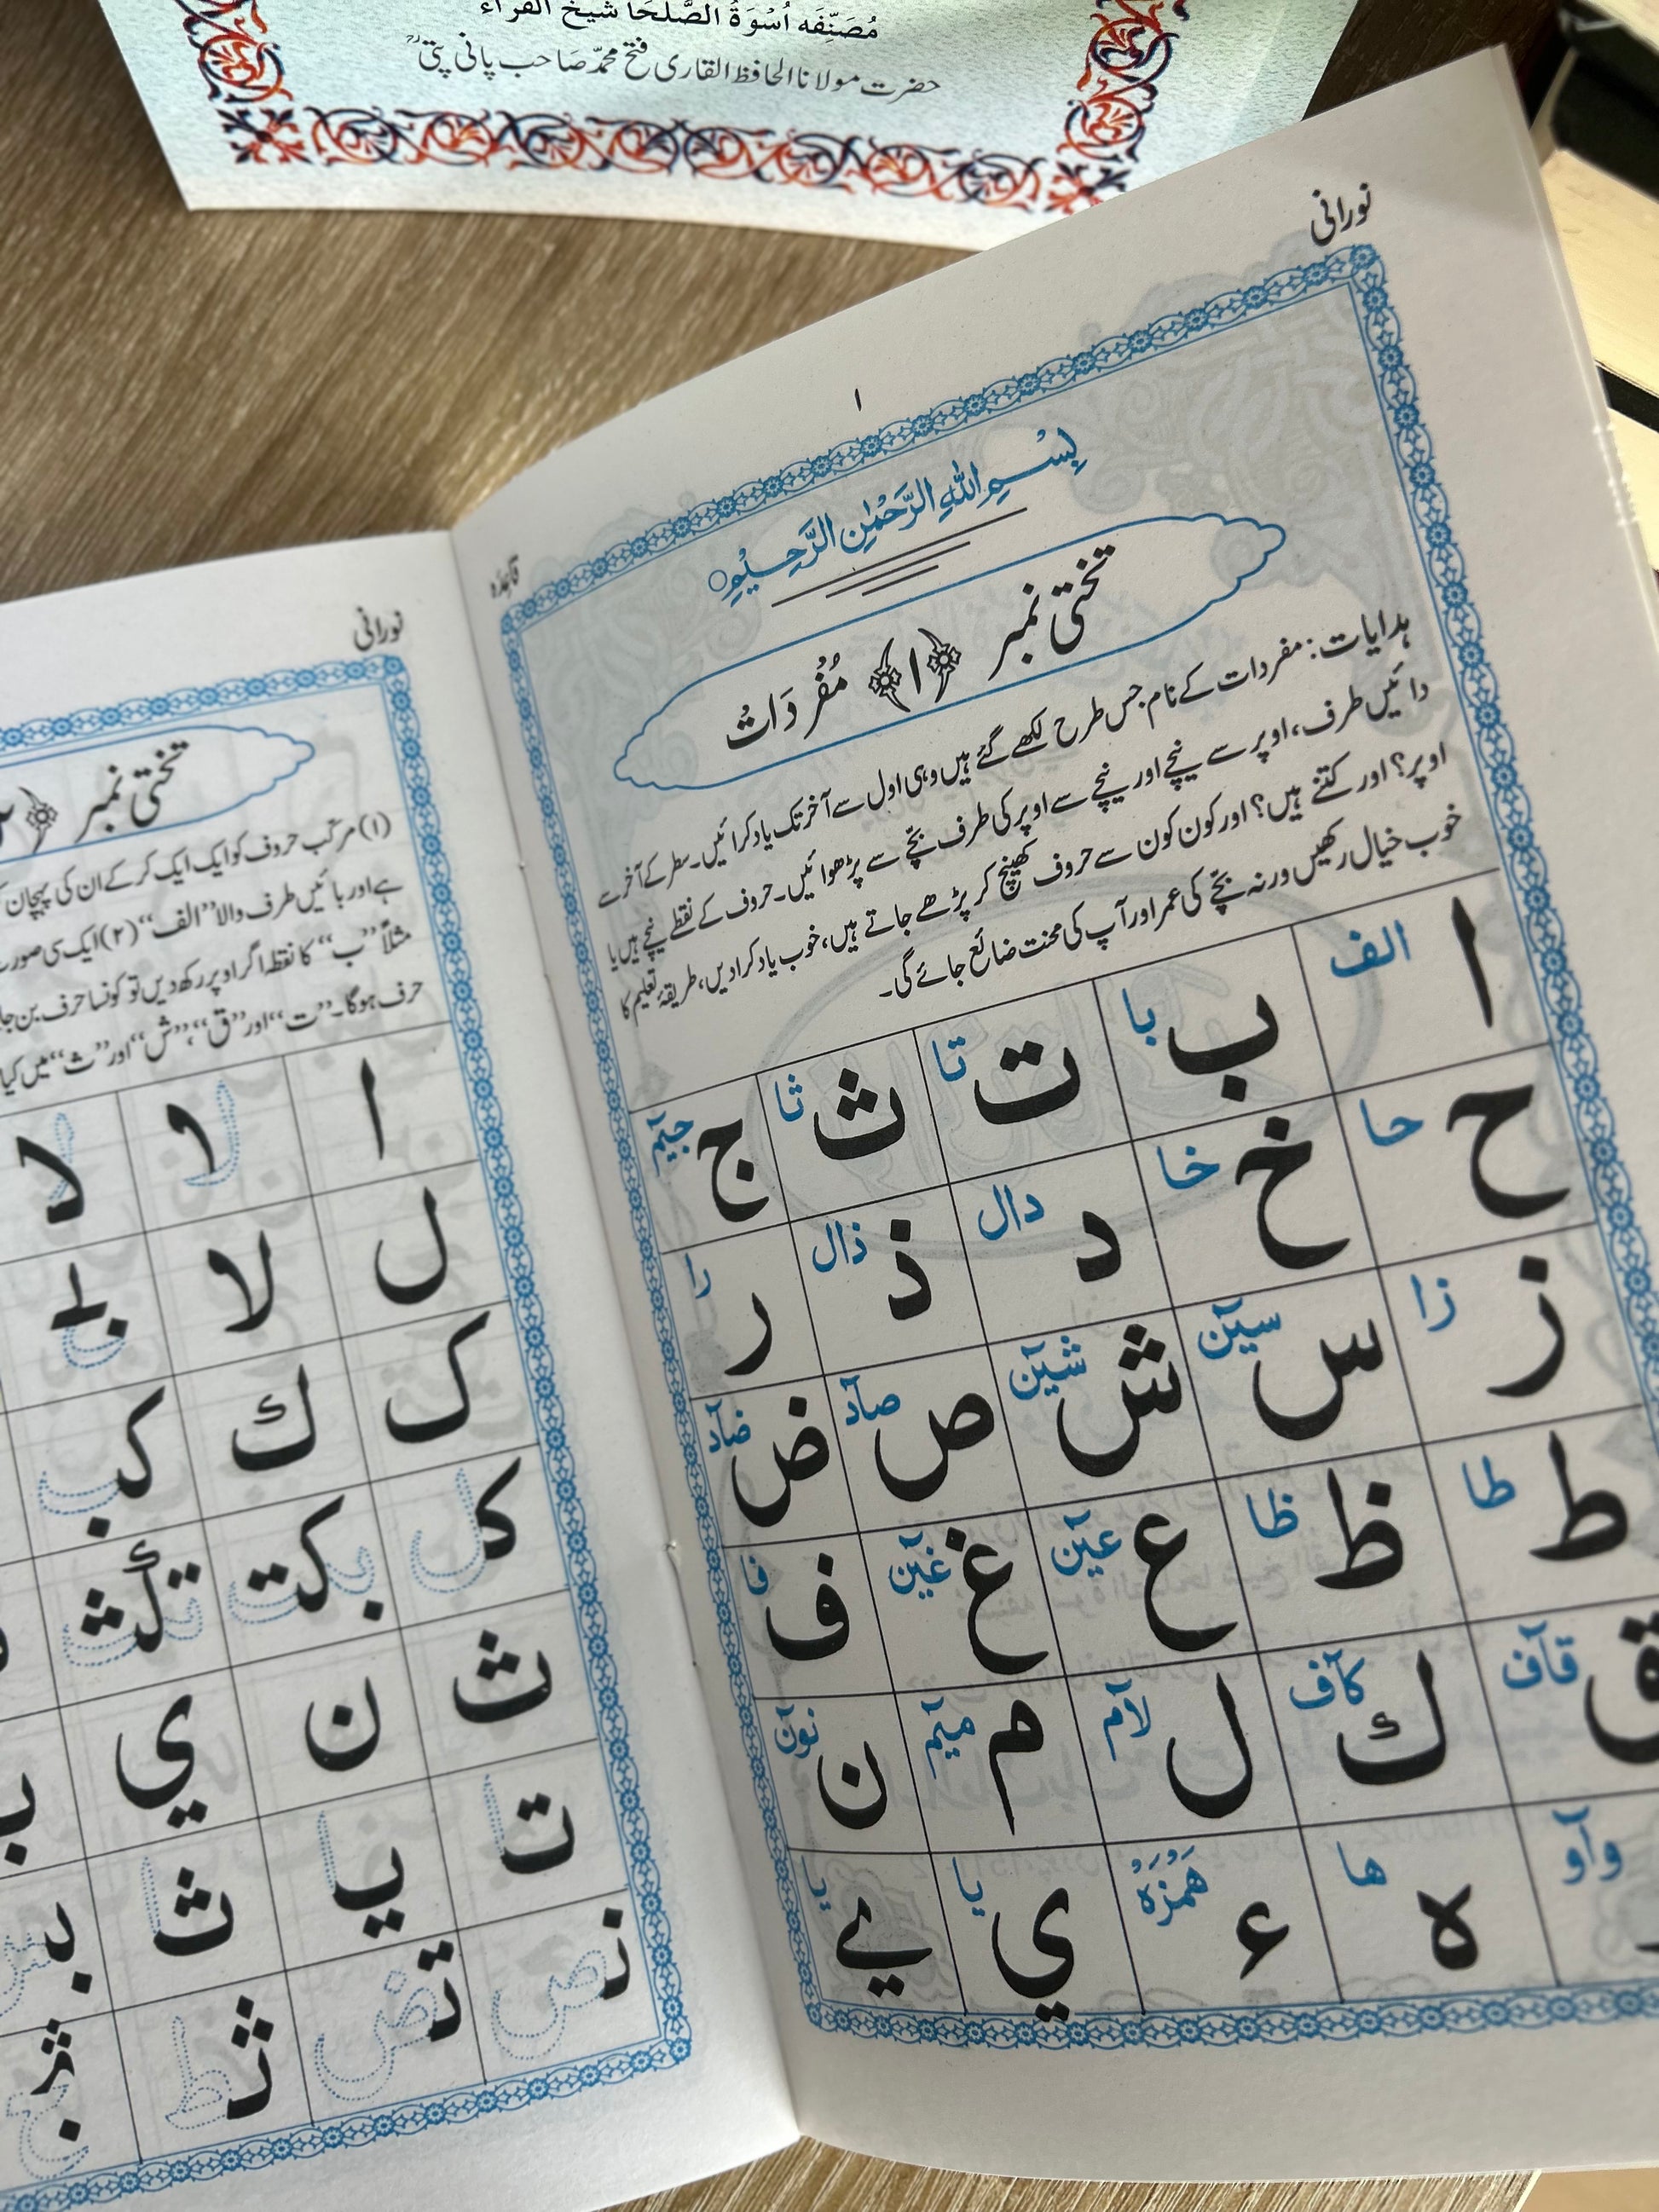 مُصَنِّفَه اُسْوَةُ الصُّلَحَا شَيخُ القُراء
حضرت مولانا الحافظ القاری فتح محمّد صاحب پانی پتیؒ
نورانی
۱
قاعدہ
بِسْمِ اللهِ الرَّحْمٰنِ الرَّحِيْمِ
تختی نمبر ﴿۱﴾ مُفْرَدَاتْ
ہدایات: مفردات کے نام جس طرح لکھے گئے ہیں وہی اول سے آخر تک یاد کرائیں۔ سطر کے آخر سے
دائیں طرف، اوپر سے نیچے اور نیچے سے اوپر کی طرف بچّے سے پڑھوائیں۔ حروف کے نقطے نیچے ہیں یا
اوپر؟ اور کتنے ہیں؟ اور کون کون سے حروف کھینچ کر پڑھے جاتے ہیں، خوب یاد کرادیں، طریقۂ تعلیم کا
خوب خیال رکھیں ورنہ بچّے کی عمر اور آپ کی محنت ضائع جائے گی۔
ا الف ب با ت تا ث ثا ج جیمٓ
ح حا خ خا د دال ذ ذال ر را
ز زا س سیٓن ش شیٓن ص صآد ض ضآد
ط طا ظ ظا ع عیٓن غ غیٓن ف ف
ق قآف ك کآف ل لآم م میٓم ن نوٓن
وآو ه ها ء هَمْزَهْ ي یا ے
نورانی
تختی نمبر ﴿۲
(۱) مرکب حروف کو ایک ایک کر کے ان کی پہچان
ہے اور بائیں طرف والا ”الف“ (۲) ایک سی صورت
مثلاً ”ب“ کا نقطہ اگر اوپر رکھ دیں تو کونسا حرف بن جا
حرف ہوگا۔ ”ت“ اور ”ق“، ”ش“ اور ”ث“ میں کیا
ا لا لا
ل لا
ک ك کب
کل بکت تکث
ث ن ي
ت یا ثا
نص تض ثط